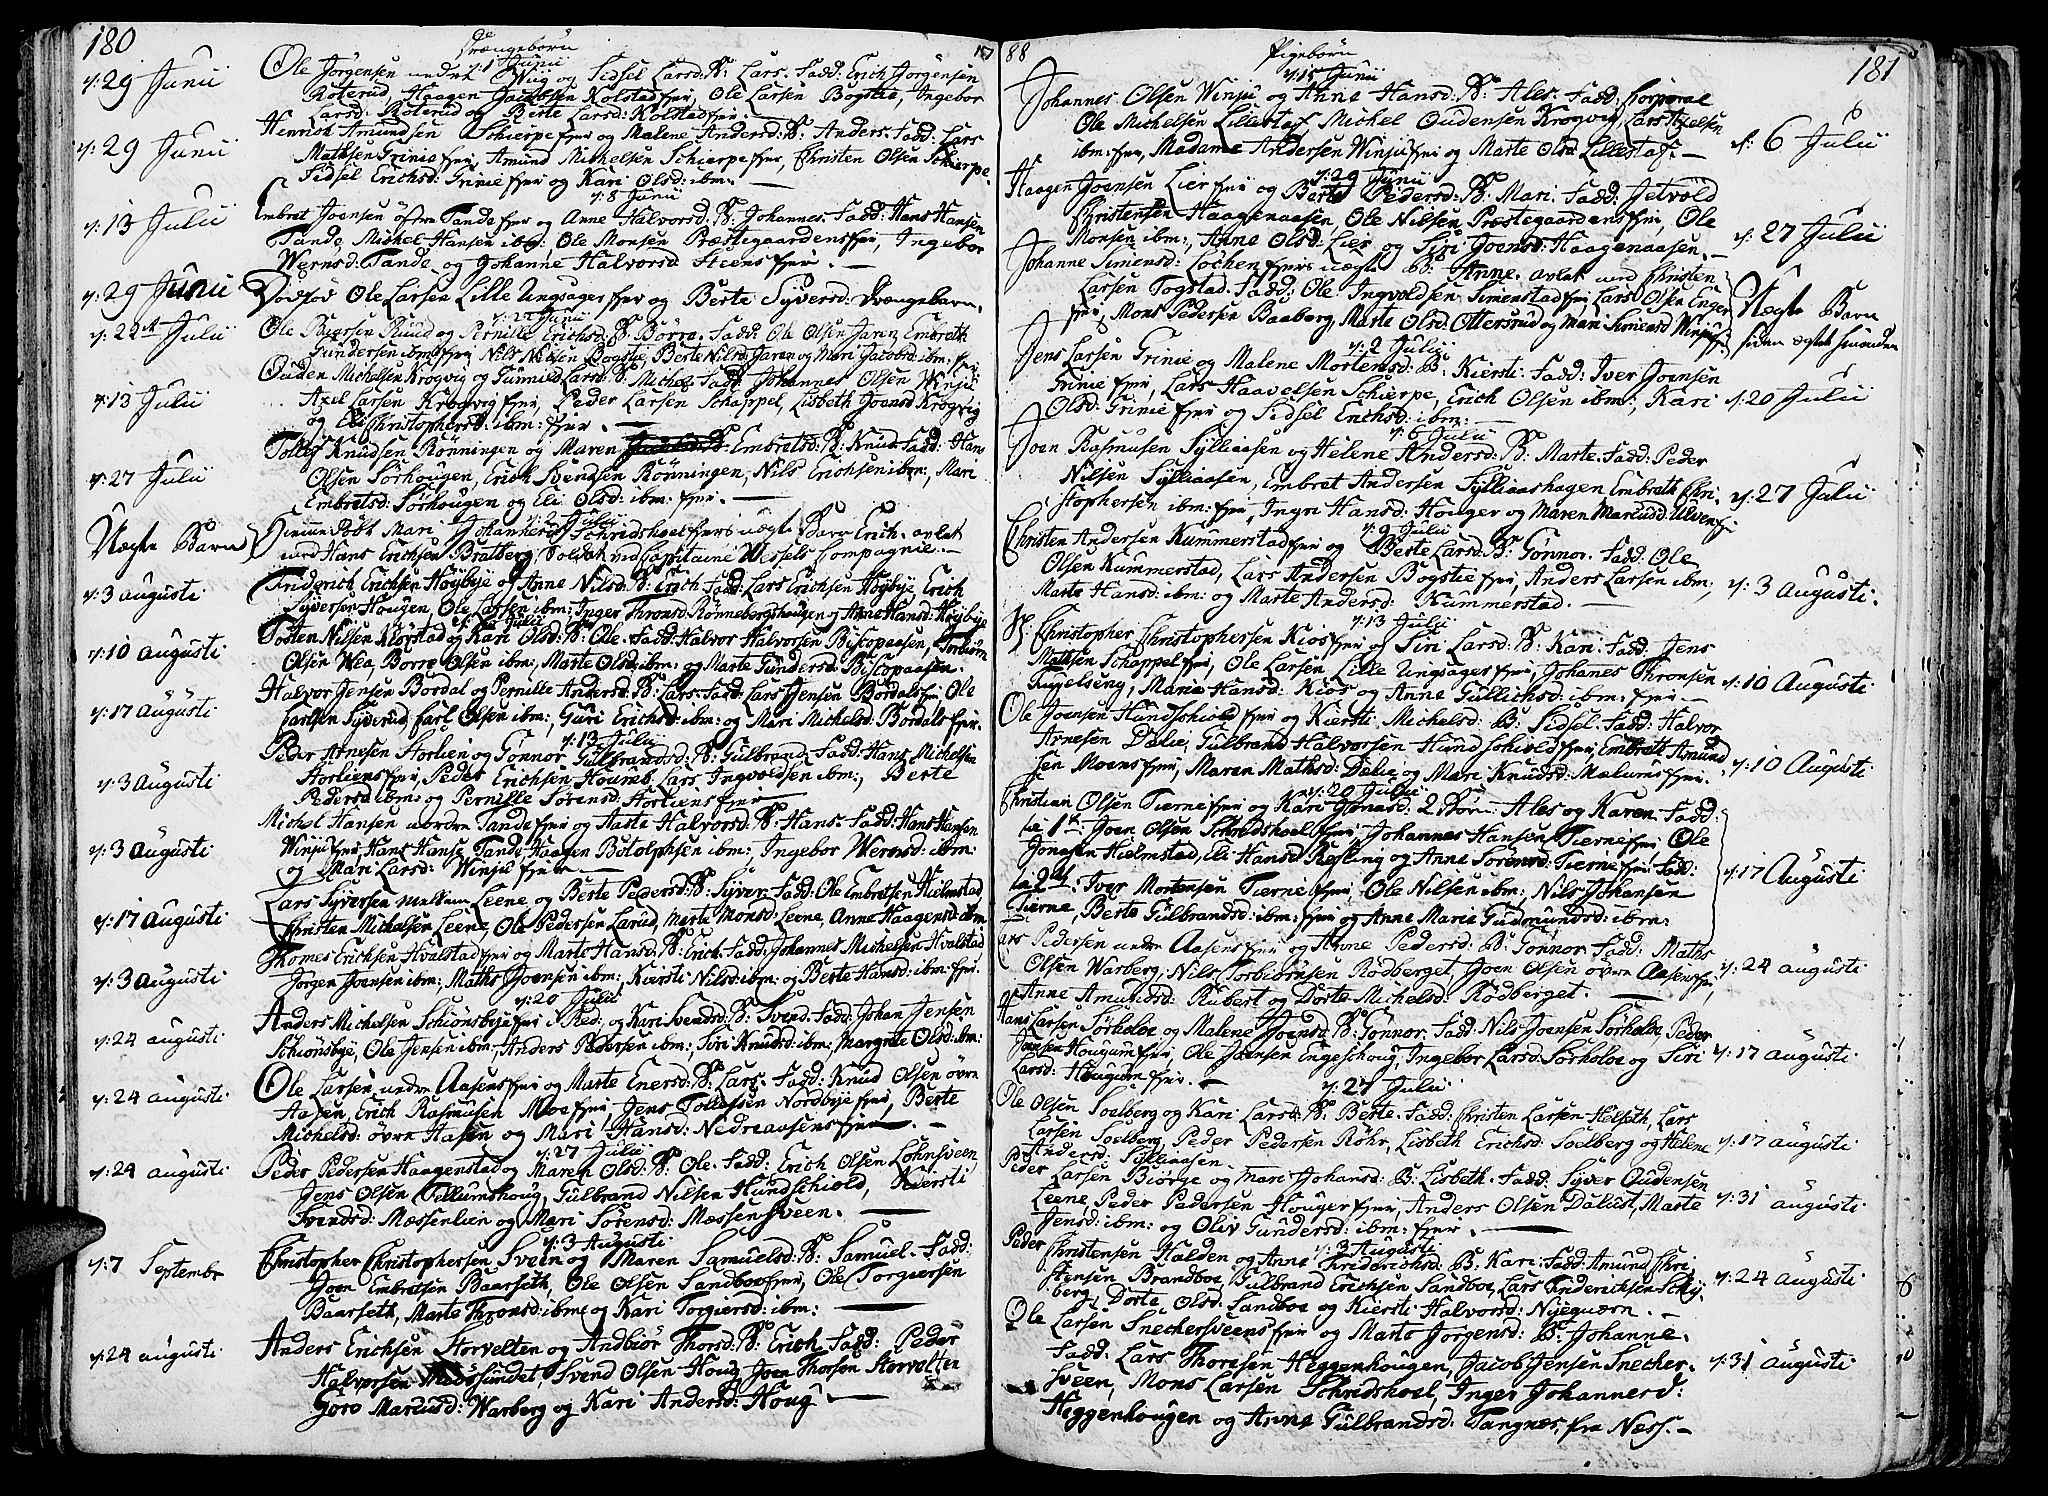 180
Drængebørn
d: 1 Junii
d: 29 Junii
Ole Jørgensen nedre Wüg og Sidsel Larsd: B: Lars. Fadd: Erich Jørgensen
Roterud, Haagen Jacobsen Kolstad fier, Ole Larsen Bogstie, Ingebor
Larsd: Roterud og Berte Larsd: Kolstad fier. —
d: 29 Junii
Henrich Amundsen Schierpe fier og Malene Andersd: B: Anders. Fadd: Lars
Mathsen Grinie fier, Amund Michelsen Schierpe fier, Christen Olsen Schierpe,
Sidsel Erichsd: Grinie fier og Kari Olsd: ibm. —
d: 8 Junii
d: 13 Julii
Embret Joensen øfre Tande fier og Anne Halvorsd: B: Johannes. Fadd: Hans Hansen
Tande, Michel Hansen ibm: Ole Monsen Præstegaardens fier, Ingebor
Wernsd: Tande og Johanne Halvorsd: Steens fier. —
d: 29 Junii
Dødfød Ole Larsen Lille Ungsager fier og Berte Syversd: Drængebarn.
d: 22 Junii
d: 22de Julii
Ole Buersen Ruud og Pernille Erichsd: B: Børre. Fadd: Ole Olsen Jaren, Embreth
Gundersen ibm: fier, Nils Nilsen Bogstie, Berte Nilsd: Jaren og Mari Jacobsd: ibm: fier
d: 13 Julii
Ouden Michelsen Krogvig og Gunnild Larsd: B: Michel. Fadd: Johannes Olsen Winju
Axel Larsen Krogvig fier, Peder Larsen Schappel, Lisbeth Joensd: Krogvig
og Eli Christophersd: ibm: fier. —
d: 27 Julii
Tollef Knudsen Rønningen og Maren Embretsd: B: Knud. Fadd: Hans
Olsen Sørhougen, Erich Svendsen Rønningen, Nils Erichsen ibm:, Mari
Embretsd: Sørhougen og Eli Olsd: ibm: fier. —
d: 2 Julii
Uægte Barn
Hiemmedøbt Mari Johannesd: Schridshoel fiers uægte Barn Erich. avlet
med Hans Erichsen Bratberg Soldat ved Capitaine Wessels Compagnie. —
d: 3 augusti
Friderich Erichsen Høybye og Anne Nilsd: B: Erich. Fadd: Lars Erichsen Høybye, Erich
Syversen Hougen, Ole Larsen ibm: Inger Thronsd: Rønnebergshougen og Anne Hansd: Høybye
d: 10 augusti
Tosten Nilsen Kløstad og Kari Olsd: B: Ole. Fadd: Halvor Halvorsen Biscopaasen, Torbiørn
Olsen Wea, Børre Olsen ibm: Marte Olsd: ibm: og Marte Gundersd: Biscopaasen.
d: 17 augusti
Halvor Jensen Bordal og Pernille Andersd: B: Lars. Fadd: Lars Jensen Bordals fier, Ole
Carlsen Syverud, Carl Olsen ibm:, Guri Erichsd: ibm: og Mari Michelsd: Bordals fier.
d: 13 Julii
d: 3 augusti
Peder Arnesen Storlien og Gønnor Gulbrandsd: B: Gulbrand. Fadd: Hans Michelsen
Storliens fier, Peder Erichsen Houmb, Lars Ingvoldsen ibm:, Berte
Pedersd: ibm: og Pernille Sørensd: Storliens fier
d: 3 augusti
Michel Hansen nordre Tande fier og Aaste Halvorsd: B: Hans. Fadd: Hans Hansen
Winju fier, Hans Hansen Tande, Haagen Botolphsen ibm:, Ingebor Wernsd: ibm:
og Mari Larsd: Winju fier. —
d: 17 augusti
Lars Syversen mellem Leene og Berte Pedersd: B: Syver. Fadd: Ole Embretsen Hielmstad
Christen Michelsen Leene, Ole Pedersen Larud, Marte Monsd: Leene, Anne Haagensd: ibm:
d: 3 augusti
Thomes Erichsen Hvalstad fier og Marte Hansd: B: Erich. Fadd: Johannes Michelsen Hvalstad
Jørgen Joensen ibm:, Maths Joensen ibm:, Kiersti Nilsd: ibm: og Berte Hansd: ibm: fier.
d: 20 Julii
d: 24 augusti
Anders Michelsen Schiønsbye fier i Red: og Kari Svendsd: B: Svend. Fadd: Johan Jensen
Schiønsbye, Ole Jensen ibm:, Anders Pedersen ibm:, Siri Knudsd: ibm:, Margrete Olsd: ibm:
d: 24 augusti
Ole Larsen nedre Aasens fier og Marte Enersd: B: Lars. Fadd: Knud Olsen øvre
Aasen, Erich Rasmusen Moe fier, Jens Tollefsen Nordbye fier, Berte
Michelsd: øvre Aasen og Mari Hansd: Nedreaasens fier. —
d: 27 Julii
d: 24 augusti
Peder Pedersen Haagenstad og Maren Olsd: B: Ole. Fadd: Erich Olsen Løhnsveen
Jens Olsen Tillumshoug, Gulbrand Nilsen Hundschiold, Kiersti
Svendsd: Mæssenlien og Mari Sørensd: Mæssensveen. —
d: 3 Augusti
d: 7 Septembr
Christopher Christophersen Sveen og Maren Samuelsd: B: Samuel. Fadd:
Joen Embretsen Baarseth, Ole Olsen Sandboe fier, Ole Torgiersen
Baarseth, Marte Thronsd: ibm: og Kari Torgiersd: ibm: —
d: 24 augusti
Anders Erichsen Storvelten og Andbiør Thorsd: B: Erich. Fadd: Peder
Halvorsen Næssundet, Svend Olsen Houg, Joen Thorsen Storvelten
Gøro Marcusd: Warberg og Kari Andersd: Houg —
88
Pigebørn
181
d: 15 Junii
Johannes Olsen Winju og Anne Hansd: B: Ales. Fadd: Corporal
Ole Michelsen Lillestaf, Michel Oudensen Krogvig, Lars Axelsen
ibm: fier, Madame Andersen Winju fier og Marte Olsd: Lillestaf. —
d: 6 Julii
d: 29 Junii
Haagen Joensen Lier fier og Berte Pedersd: B: Mari. Fadd: Jetvold
Christensen Haagenaasen, Ole Nilsen Præstegaardens fier, Ole
Monsen ibm:, Anne Olsd: Lier og Siri Joensd: Haagenaasen.
d: 27 Julii
Johanne Simensd: Løchen fiers uægte B: Anne. avlet med Christen
Larsen Togstad. Fadd: Ole Ingvoldsen Simenstad fier, Lars Olsen Enger
fier, Mons Pedersen Baaberg, Marte Olsd: Ottersrud og Mari Simensd: Winju fier
Uægte Barn
siden ægtet hinanden
d: 2 Julii
Jens Larsen Grinie og Malene Mortensd: B: Kiersti. Fadd: Iver Joensen
Grinie fier, Lars Haavelsen Schierpe, Erich Olsen ibm:, Kari
Olsd: Grinie fier og Sidsel Erichsd: ibm: —
d: 20 Julii
d: 6 Julii
Joen Rasmusen Sylliaasen og Helene Andersd: B: Marte. Fadd: Peder
Nilsen Sylliaasen, Embret Andersen Sylliaashagen, Embreth Chri-
stophersen ibm: fier, Ingri Hansd: Houger og Maren Marcusd: Ulven fier
d: 27 Julii
d: 9 Julii
Christen Andersen Kummerstad fier og Berte Larsd: B: Gønnor. Fadd: Ole
Olsen Kummerstad, Lars Andersen Bogstie fier, Anders Larsen ibm:,
Marte Hansd: ibm: og Marte Andersd: Kummerstad. —
d: 3 Augusti.
d: 13 Julii
Christopher Christophersen Kios fier og Siri Larsd: B: Kari. Fadd: Jens
Mathsen Schappel fier, Ole Larsen Lille Ungsager fier, Johanes Thronsen
Kuggelseng, Marie Hansd: Kios og Anne Gullichsd: ibm: fier. —
d: 10 Augusti
Ole Joensen Hundschiold fier og Kiersti Michelsd: B: Sidsel. Fadd: Halvor
Arnesen Dælie, Gulbrand Halvorsen Hundschiold fier, Embreth Amund
sen Moens fier, Maren Mathsd: Dælie og Mari Knudsd: Mælums fier.
d: 10 Augusti
d: 20 Julii
Christian Olsen Tierne fier og Kari Jonasd: 2 Børn Ales og Karen. Fadd:
til 1ste: Joen Olsen Schredshoel fier, Johannes Hansen Tierne fier, Ole
Jonasen Hielmstad, Eli Hansd: Kefling og Anne Sørensd: Tierne fier. Fadd:
til 2det: Iver Mortensen Tierne fier, Ole Nilsen ibm:, Nils Johansen
Tierne, Berte Gulbrandsd: ibm: fier og Anne Marie Gudmundsd: ibm:
d: 17 Augusti
Lars Pedersen nedre Aasens fier og Anne Pedersd: B: Gønnor. Fadd: Maths
Olsen Warberg, Nils Torbiørnsen Rødberget, Joen Olsen øvre Aasens fier,
Anne Amundsd: Rubert og Dorte Michelsd: Rødberget. —
d: 24 augusti
Hans Larsen Sørholoe og Malene Joensd: B: Gønnor. Fadd: Nils Joensen Sørholoe, Peder
Jensen Hougum fier, Ole Joensen Engeschoug, Ingebor Larsd: Sørholoe og Siri
Larsd: Hougum fier. —
d: 17 augusti
d: 27 Julii
Ole Olsen Soelberg og Kari Larsd: B: Berte. Fadd: Christen Larsen Helseth, Lars
Larsen Soelberg, Peder Pedersen Røhr, Lisbeth Erichsd: Soelberg og Helene
Andersd: Sylliaasen.
d: 17 augusti
Peder Larsen Biørge og Mari Johansd: B: Lisbeth. Fadd: Syver Oudensen
Leene, Peder Pedersen Houger fier, Anders Olsen Dalust, Marte
Jensd: ibm: og Oliv Gundersd: ibm: fier. —
d: 31 augusti
d: 3 Augusti
Peder Christensen Halden og Anne Friderichsd: B: Kari. Fadd: Amund Chri-
stensen Brandboe, Gulbrand Erichsen Sandboe, Lars Frideriksen Schy-
berg, Dorte Olsd: Sandboe og Kiersti Halvorsd: Nyequærn. —
d: 24 augusti
Ole Larsen Snechersveens fier og Marte Jørgensd: B: Johanne.
Fadd: Lars Thoresen Heggenhougen, Jacob Jensen Snecher-
sveen, Mons Larsen Schridshoel, Inger Johannesd:
Heggenhougen og Anne Gulbrandsd: Tangnæs, fra Næss. —
d: 31 augusti